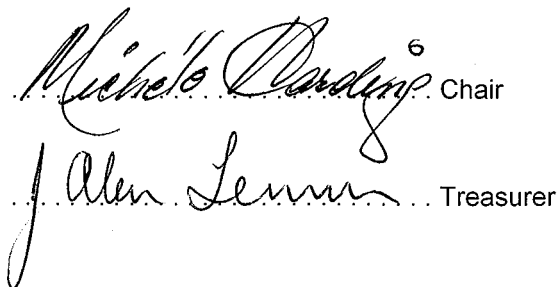 Michele Harding Chair
J Alan Lennon Treasurer